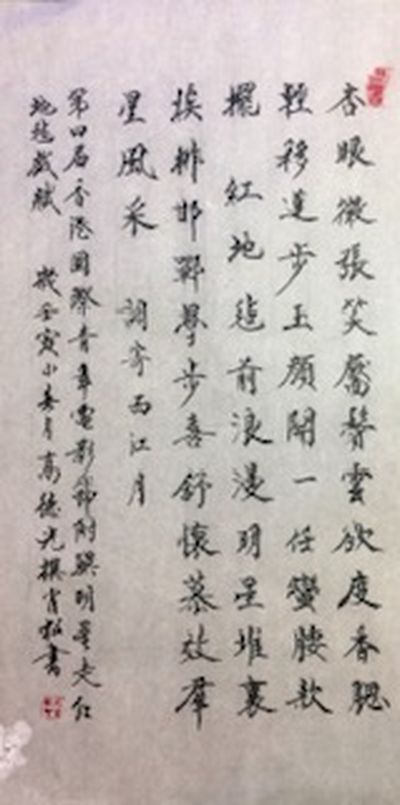 杏眼微張笑靨鬢雲欲度香腮
輕移蓮步玉顏開一任蠻腰款
擺 紅地毯前浪漫明星堆裏
挨排邯鄲學步喜舒懷慕效羣
星風采 調寄西江月
第四屆香港國際青年電影節與明星走紅
地毯戲賦 歲壬寅小春月高德光撰書